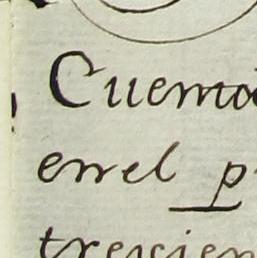 Cuenta
en el p
trescien